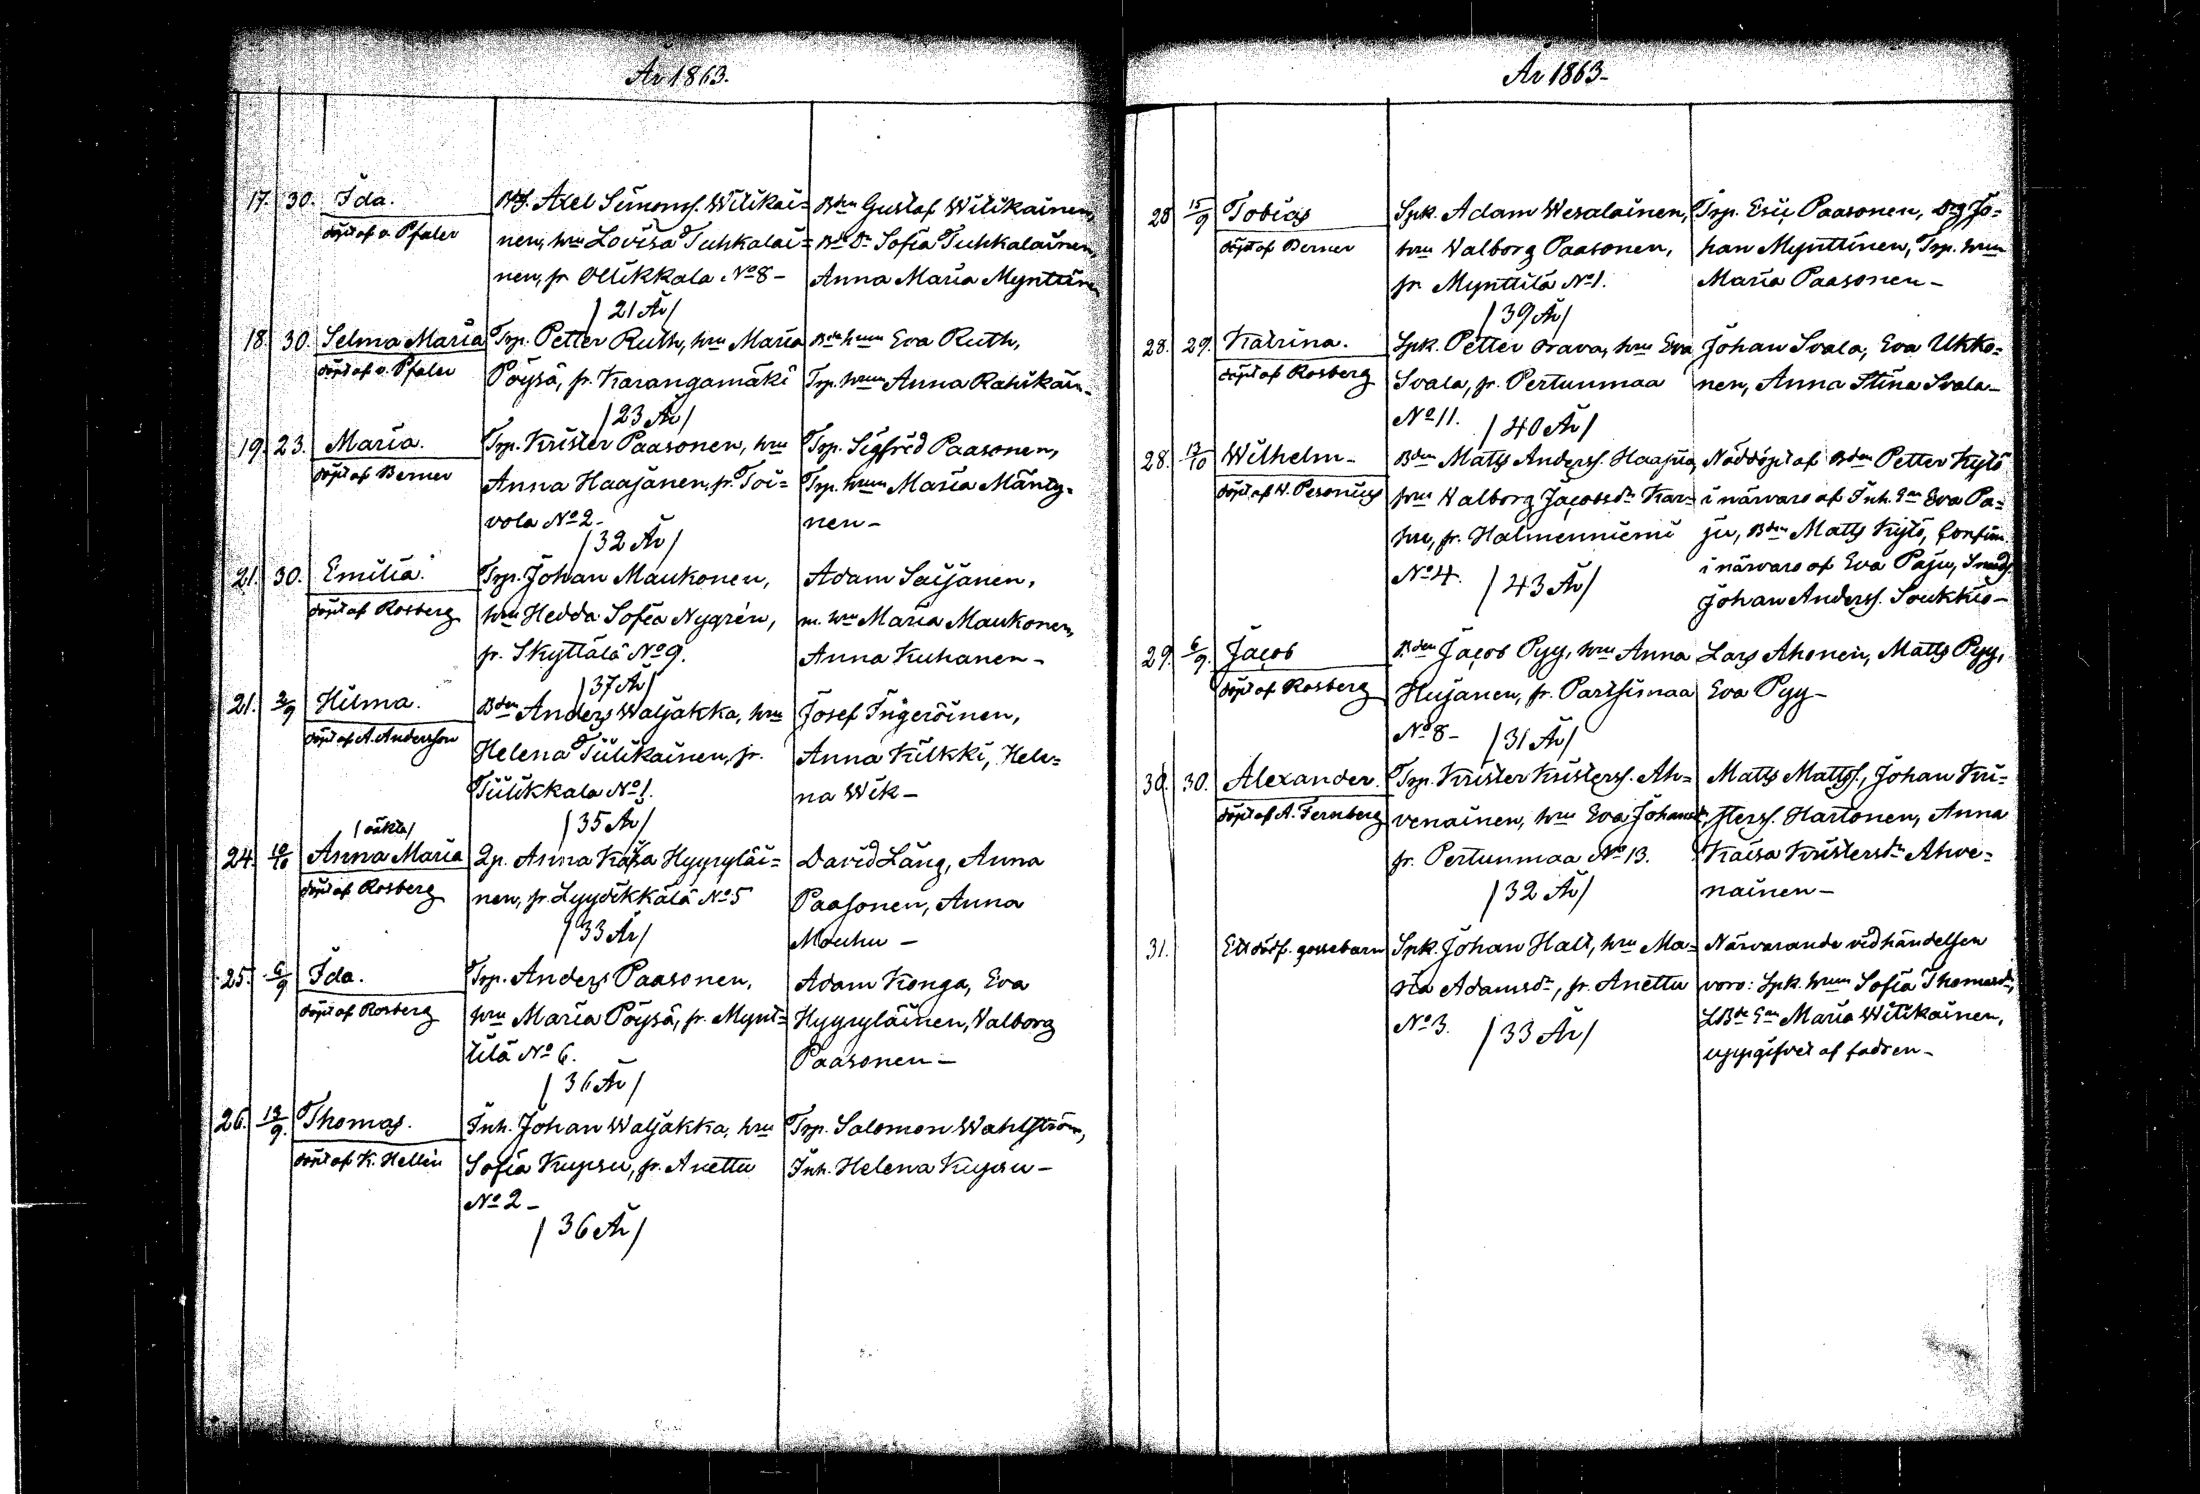 År 1863.
17. 30. Ida.
döpt af v. Pfaler
Axel Simonss. Wilikai=
nen, hru Lovisa Tuhkalai=
nen, fr. Ollikkala No 8 -
/21 År/
Bden Gustaf Wilikainen,
Bde Dr Sofia Tuhkalainen,
Anna Maria Mynttinen
18. 30. Selma Maria
döpt af v. Pfaler
Trp. Petter Ruth, hru Maria
Pöysä, fr. Karangamäki
/23 År/
Bde hrun Eva Ruth,
Trp. hrun Anna Rahikain.
19. 23. Maria.
döpt af Berner
Trp. Krister Paasonen, hru
Anna Haajanen, fr. Toi=
vola No 2 -
/32 År/
Trp. Sigfrid Paasonen,
Trp. hrun Maria Mänty=
nen -
21. 30. Emilia.
döpt af Rosberg
Trp. Johan Maukonen,
hru Hedda Sofia Nygrén,
fr. Skyttälä No 9.
/37 År/
Adam Saijanen,
m. hru Maria Maukonen,
Anna Kuhanen -
21. 3/9 Hilma.
döpt af A. Andersson
Bden Anders Waljakka, hru
Helena Tiilikainen, fr.
Tiilikkala No 1.
/35 År/
Josef Ingeröinen,
Anna Kilkki, Hele=
na Wik -
/oäkta/
24. 10/10 Anna Maria
döpt af Rosberg
Qp. Anna Kaisa Hyyryläi=
nen, fr. Lyydikkälä No 5
/33 År/
David Läng, Anna
Paasonen, Anna
Mouhu -
25. 6/9 Ida.
döpt af Rosberg
Trp. Anders Paasonen,
hru Maria Pöysä, fr. Mynt=
tilä No 6.
/36 År/
Adam Konga, Eva
Hyyryläinen, Valborg
Paasonen -
26. 13/9. Thomas.
döpt af K. Hellén
Inh. Johan Waljakka, hru
Sofia Kupsu, fr. Anettu
No 2 -
/36 År/
Trp. Salomon Wahlström,
Inh. Helena Kupsu -
År 1863 -
28 15/9 Tobias
döpt af Berner
Spk. Adam Wesalainen,
hru Valborg Paasonen,
fr. Mynttilä No 1.
/39 År/
Trp. Eric Paasonen, Drg Jo=
han Mynttinen, Trp. hrun
Maria Paasonen -
28. 29. Katrina.
döpt af Rosberg
Spk. Petter Orava, hru Eva
Svala, fr. Pertunmaa
No 11.
/40 År/
Johan Svala, Eva Ukko=
nen, Anna Stina Svala -
28. 13/10 Wilhelm -
döpt af W. Pesonius
Bden Matts Anderss. Haapia,
hru Valborg Jacobsdr Kar=
hu, fr. Halmenniemi
No 4.
/43 År/
Nöddöpt af Bden Petter Kylö
i närvaro af Inh. Eva Pa=
ju, Bden Matts Kylö, Confirm.
i närvaro af Eva Paju,
Johan Anderss. Soukkio -
29. 6/9. Jacob
döpt af Rosberg
Bden Jacob Pyy, hru Anna
Hujanen, fr. Partsimaa
No 8 -
/31 År/
Lars Ahonen, Matts Pyy,
Eva Pyy -
30. 30. Alexander.
döpt af A. Fernberg
Trp. Krister Kristerss. Ah=
venainen, hru Eva Johansdr,
fr. Pertunmaa No 13.
/32 År/
Matts Mattss., Johan Kri=
sterss. Hartonen, Anna
Kaisa Kristersdr Ahve=
nainen -
31. Ett dödf. gossebarn
Spk. Johan Halt, hru Ma=
ria Adamsdr, fr. Anettu
No 3.
/33 År/
Närvarande vid händelsen
voro: Spk. hrun Sofia Thomasdr,
Maria Wilikainen,
uppgifvet af fadren -